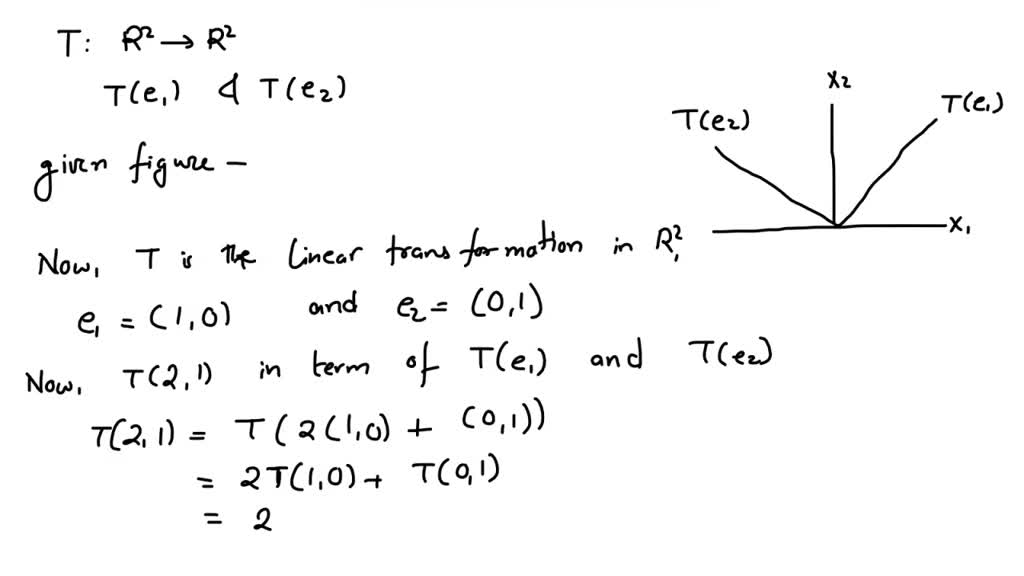 T: R² → R²
T(e₁) & T(e₂)
given figure —
X₂
T(e₂)
T(e₁)
X₁
Now, T is the linear transformation in R²,
e₁ = (1,0) and e₂ = (0,1)
Now, T(2,1) in term of T(e₁) and T(e₂)
T(2,1) = T(2(1,0) + (0,1))
= 2T(1,0) + T(0,1)
= 2